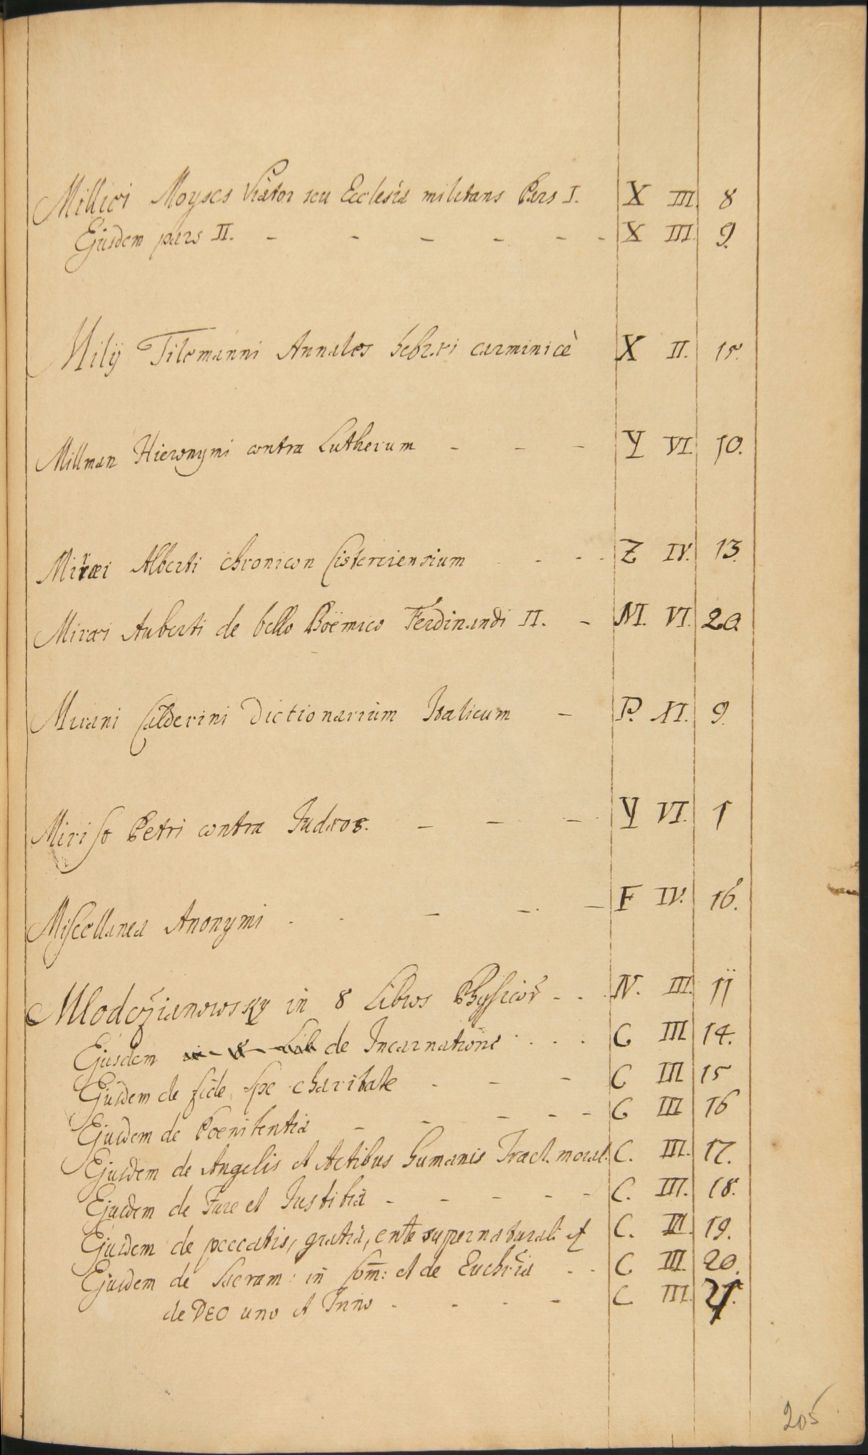 Milleri Moyses Viator seu Ecclesia militans Pars I. X III. 8
Ejusdem pars II. - - - - - - X III 9.
Milij Tilemanni Annales carminicè X II. 15.
Millman Hieronymi contra Lutherum - - - Y VI. 10.
Miræi Alberti chronicon Cisterciensium - - Z IV. 13.
Miræi Auberti de bello Boëmico Ferdinandi II. - M. VI. 20.
Mirani Calderini Dictionarium Italicum - P. XI. 9.
Petri contra Judæos. - - - Y VI. 1
Miscellanea Anonymi - - - - - F IV. 16.
Mlodozianowsky in 8 Libros Physicor - - N. III. 11
Ejusdem de Incarnatione - - - C III 14.
Ejusdem de fide, spe charitate - - - C III 15
Ejusdem de Poenitentia - - - - - C III 16
Ejusdem de Angelis et Actibus humanis Tract. moral. C. III. 17.
Ejusdem de Jure et Justitia - - - - - C. III. 18.
Ejusdem de peccatis, gratia, ente supernaturali et C. III. 19.
Ejusdem de Sacram: in com: et de Euchria - - C III. 20.
de DEO uno et Trino - - - - C III. 21.
205